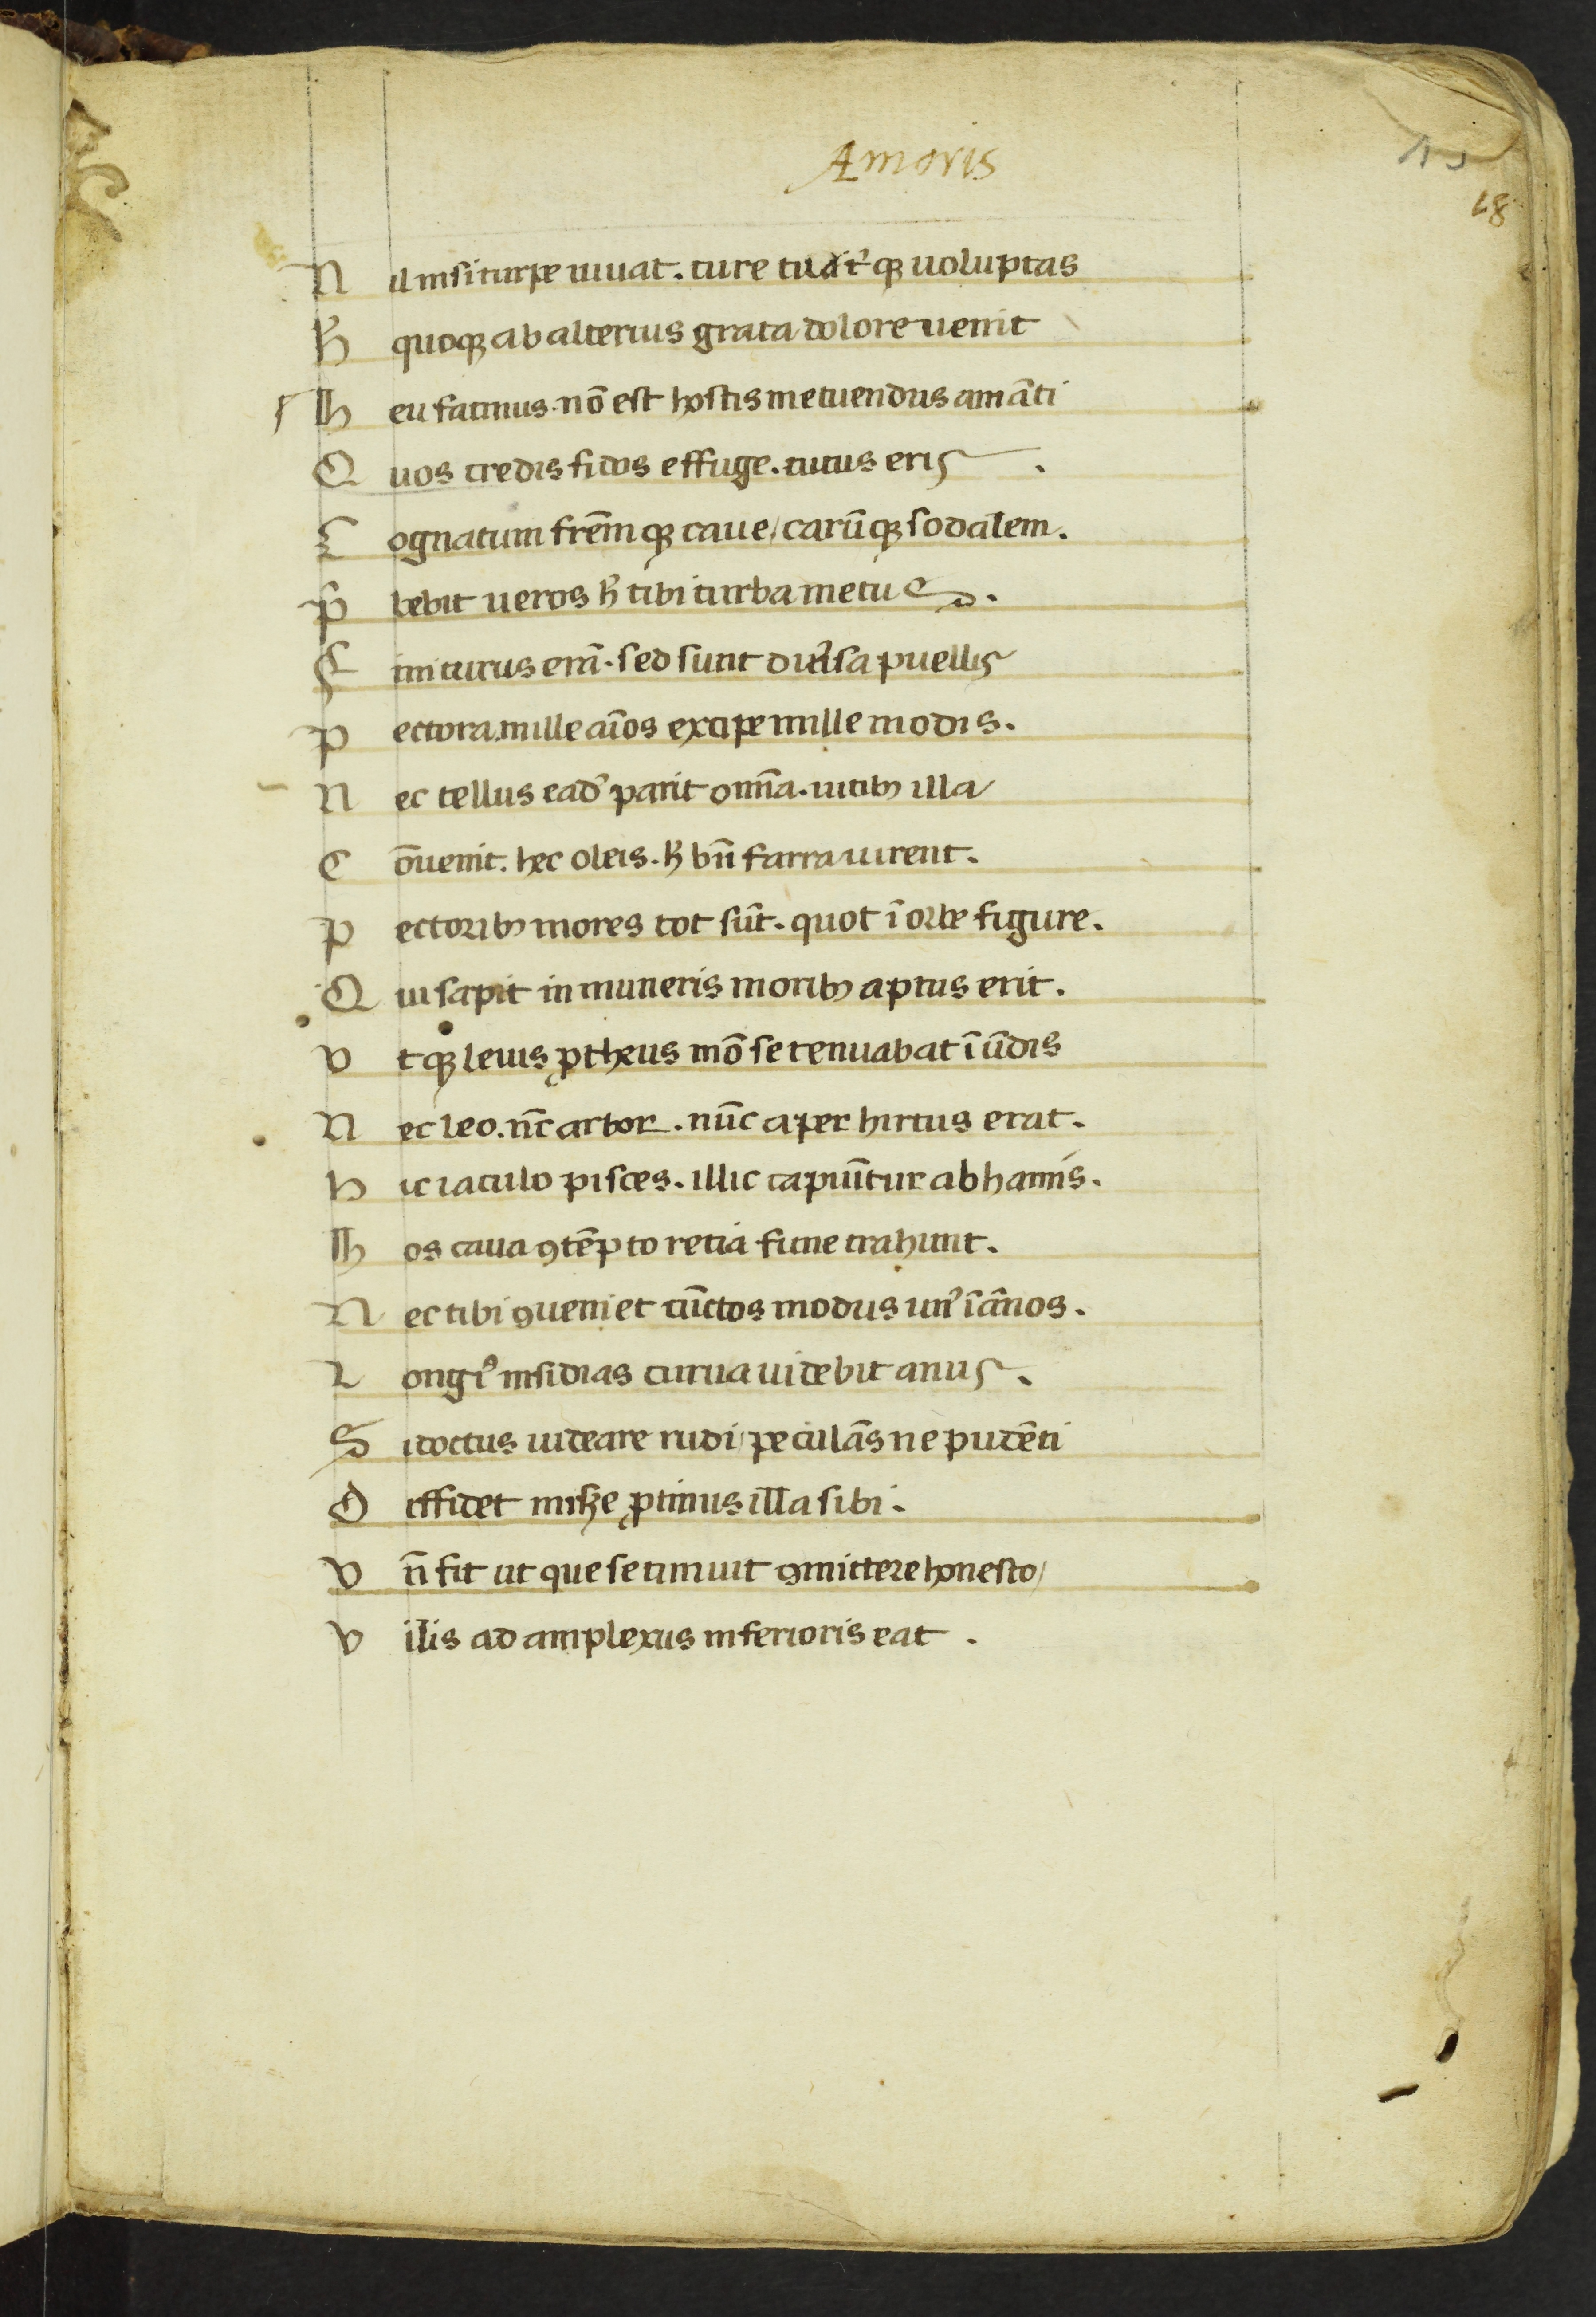 Amoris
15
18
N il nisi turpe iuuat. cure cuiꝫ voluptas
h̄ quoqꝫ ab alterius grata dolore uenit
Heu facinus. nō est hostis metuendus amāti
Quos credis fidos effuge. tutus eris.
Cognatum frēmqꝫ caue, carūqꝫ sodalem.
P̄bebit ueros h̄ tibi turba metus.
Finiturus erā. sed sunt diu̾sa puellis
Pectora. mille aīos excipe mille modis.
Nec tellus ead̾ parit omīa. uitibꝫ illa
Cōuenit. hec oleis. h̄ bn̄ farra uirent.
Pectoribꝫ mores tot sūt. quot ī orbe figure.
Qui sapit in muneris moribꝫ aptus erit.
Vtqꝫ leuis ꝓtheus mō se tenuabat ī ūdis
Nec leo. nc̄ arbor. nūc aper hirtus erat.
Hic iaculo pisces. illic capiūtur ab hamis.
Hos caua ꝯtēpto retia fune trahunt.
Nec tibi ꝯueniet cūctos modus un̾ ī ānos.
Longi᷒ insidias curua uidebit anus.
Si doctus uideare rudi, petulās ue pudēti
Diffidet miẜe ꝓtinus illa sibi.
Vn̄ fit ut que se timuit ꝯmittere honesto,
Vilis ad amplexus inferioris eat.